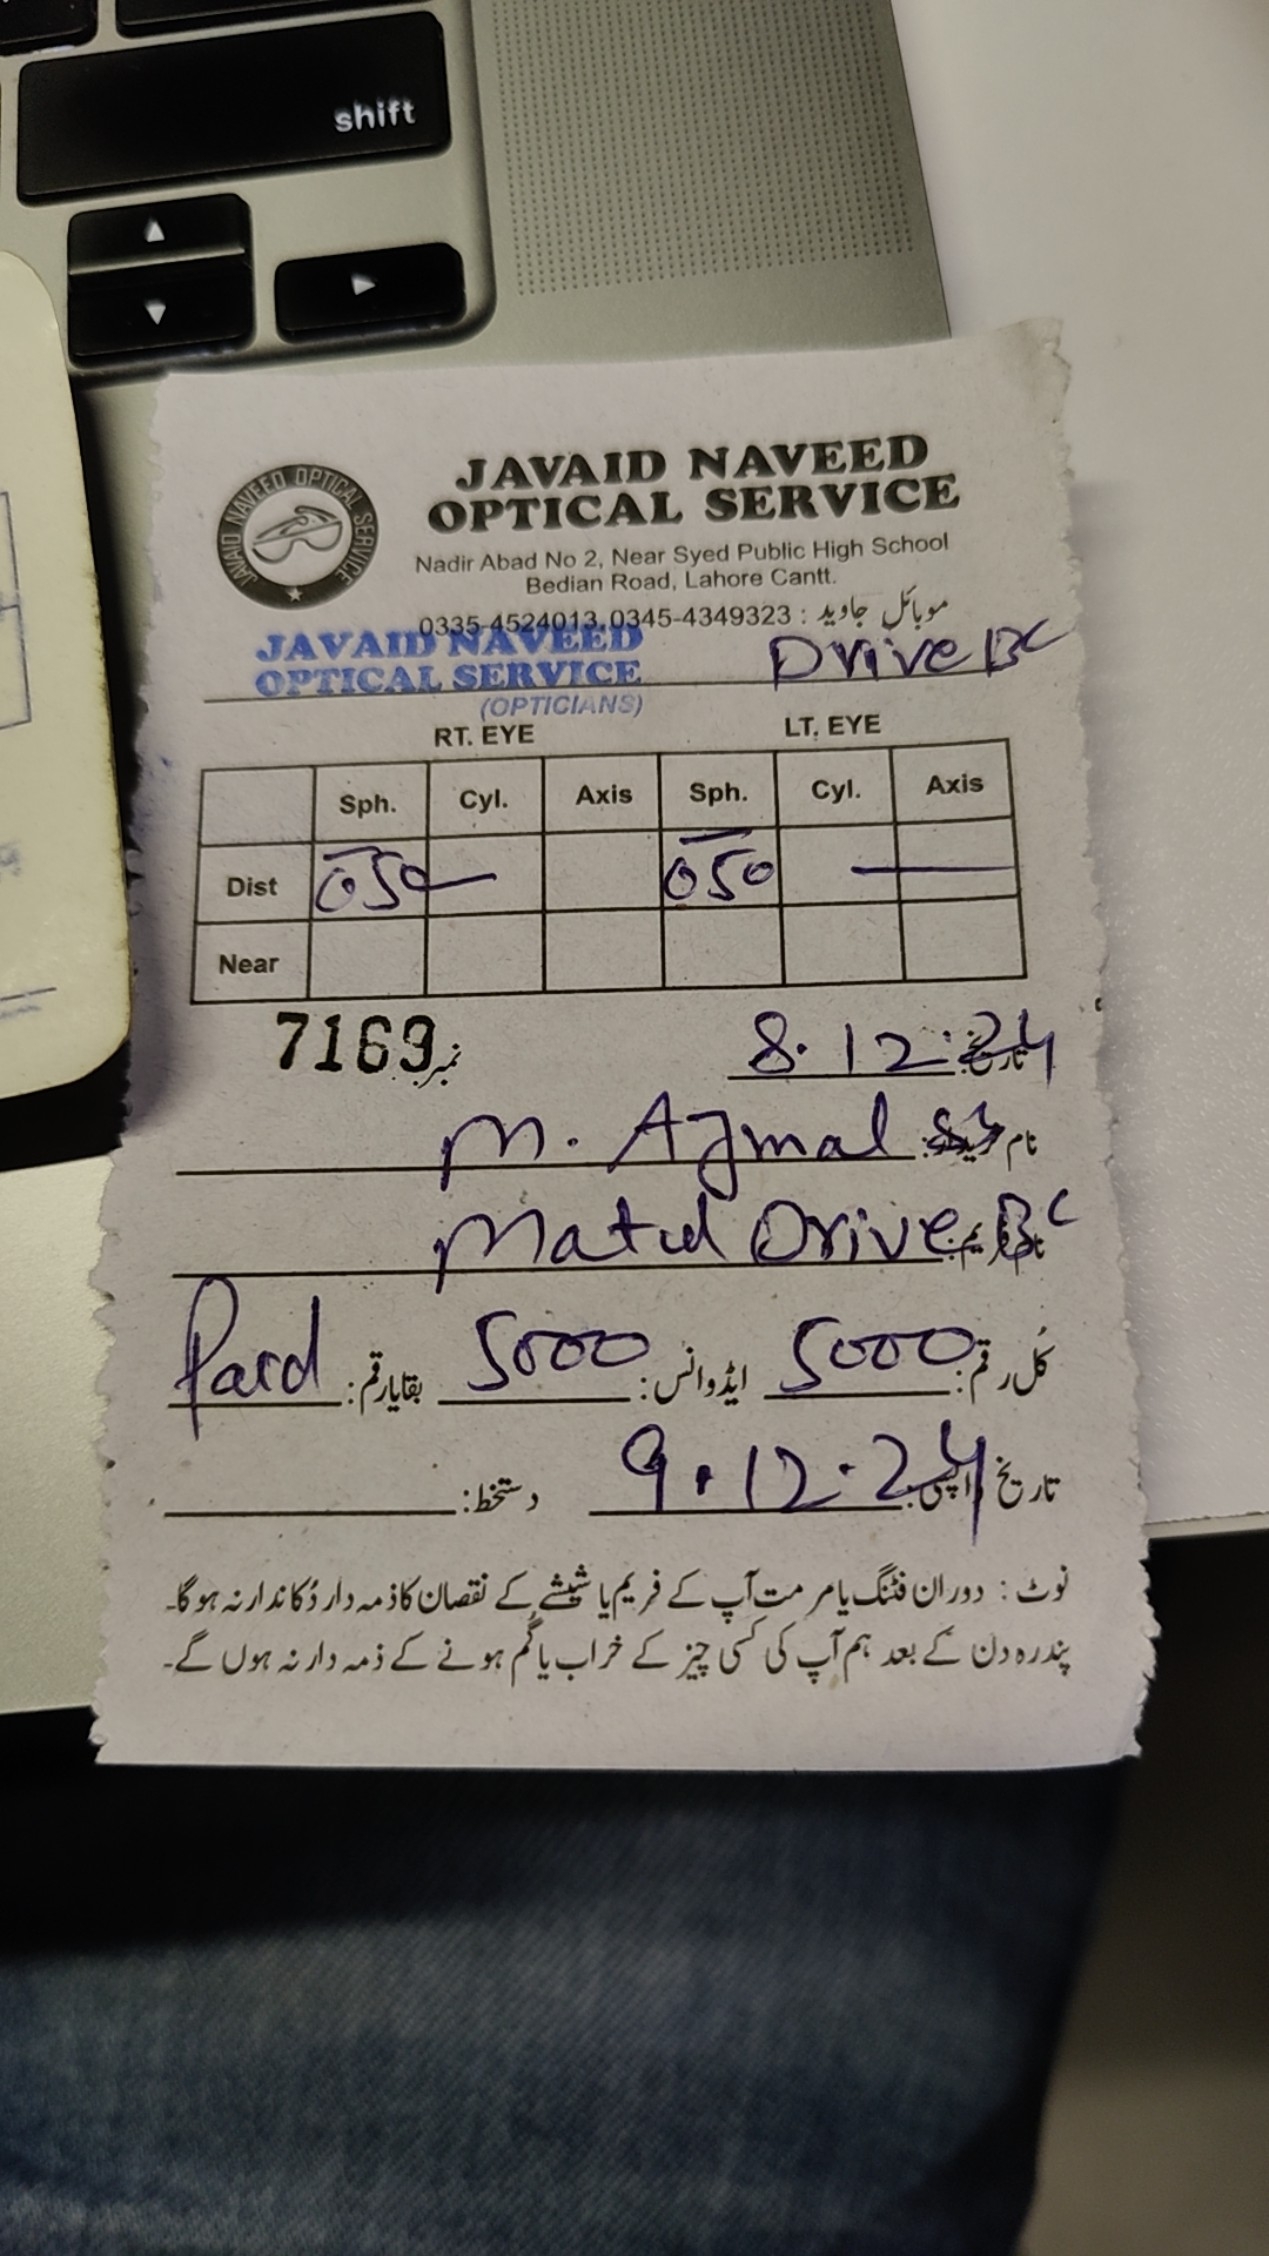 shift
JAVAID NAVEED OPTICAL SERVICE
JAVAID NAVEED
OPTICAL SERVICE
Nadir Abad No 2, Near Syed Public High School
Bedian Road, Lahore Cantt.
موبائل جاوید : 0335-4524013, 0345-4349323
JAVAID NAVEED
OPTICAL SERVICE
(OPTICIANS)
Drive BC
RT. EYE LT. EYE
Sph. Cyl. Axis Sph. Cyl. Axis
Dist 050 — 050 —
Near
7169 نمبر: تاریخ: 8.12.24
نام M. Ajmal
Drive BC
کُل رقم: 5000 ایڈوانس: 5000 بقایا رقم: Paid
تاریخ واپسی: 9.12.24 دستخط:
نوٹ : دوران فٹنگ یا مرمت آپ کے فریم یا شیشے کے نقصان کا ذمہ دار دُکاندار نہ ہوگا۔
پندرہ دن کے بعد ہم آپ کی کسی چیز کے خراب یا گم ہونے کے ذمہ دار نہ ہوں گے۔